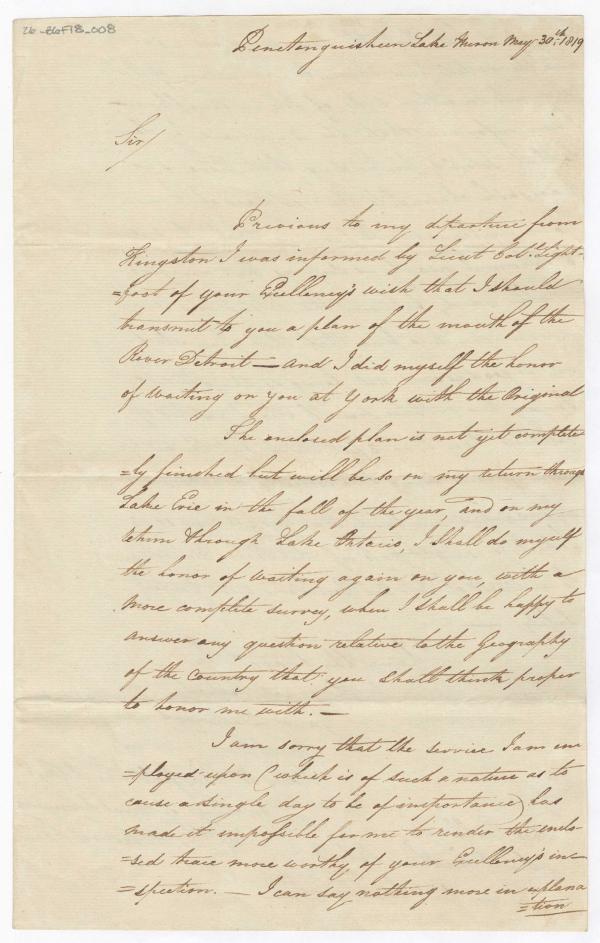 26-B6F18_008
Penetanguisheen Lake Huron May 30th. 1819
Sir/
Previous to my departure from
Kingston I was informed by Lieut Colo. Light-
=foot of your Excellency's wish that I should
transmit to you a plan of the mouth of the
River Detroit — and I did myself the honor
of waiting on you at York with the Original
The enclosed plan is not yet complete
=ly finished but will be so on my return through
Lake Erie in the fall of the year, and on my
return through Lake Ontario, I shall do myself
the honor of waiting again on you, with a
more complete survey, when I shall be happy to
answer any question relative to the Geography
of the Country that you shall think proper
to honor me with. —
I am sorry that the service I am em
=ployed upon (which is of such a nature as to
cause a single day to be of importance) has
made it impossible for me to render the enclo-
=sed trace more worthy of your Excellency's in-
=spection. — I can say nothing more in explana
=tion